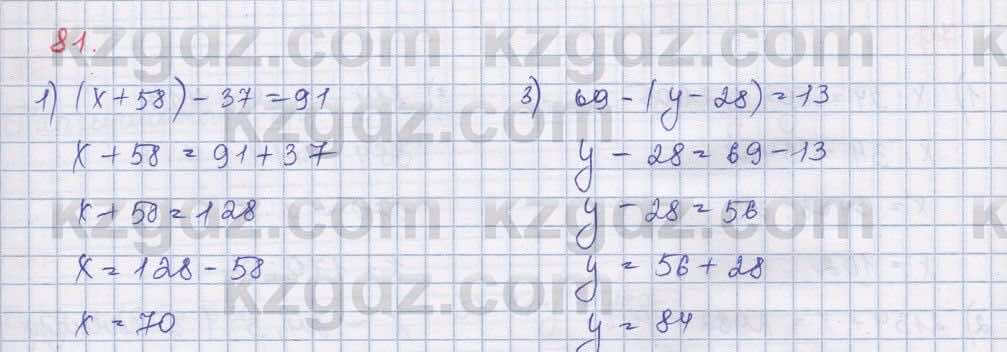 81.
1) (x+58)-37=91
x+58=91+37
x+58=128
x=128-58
x=70
3) 69-(y-28)=13
y-28=69-13
y-28=56
y=56+28
y=84
kzgdz.com
kzgdz.com
kzgdz.com
kzgdz.com
kzgdz.com
kzgdz.com